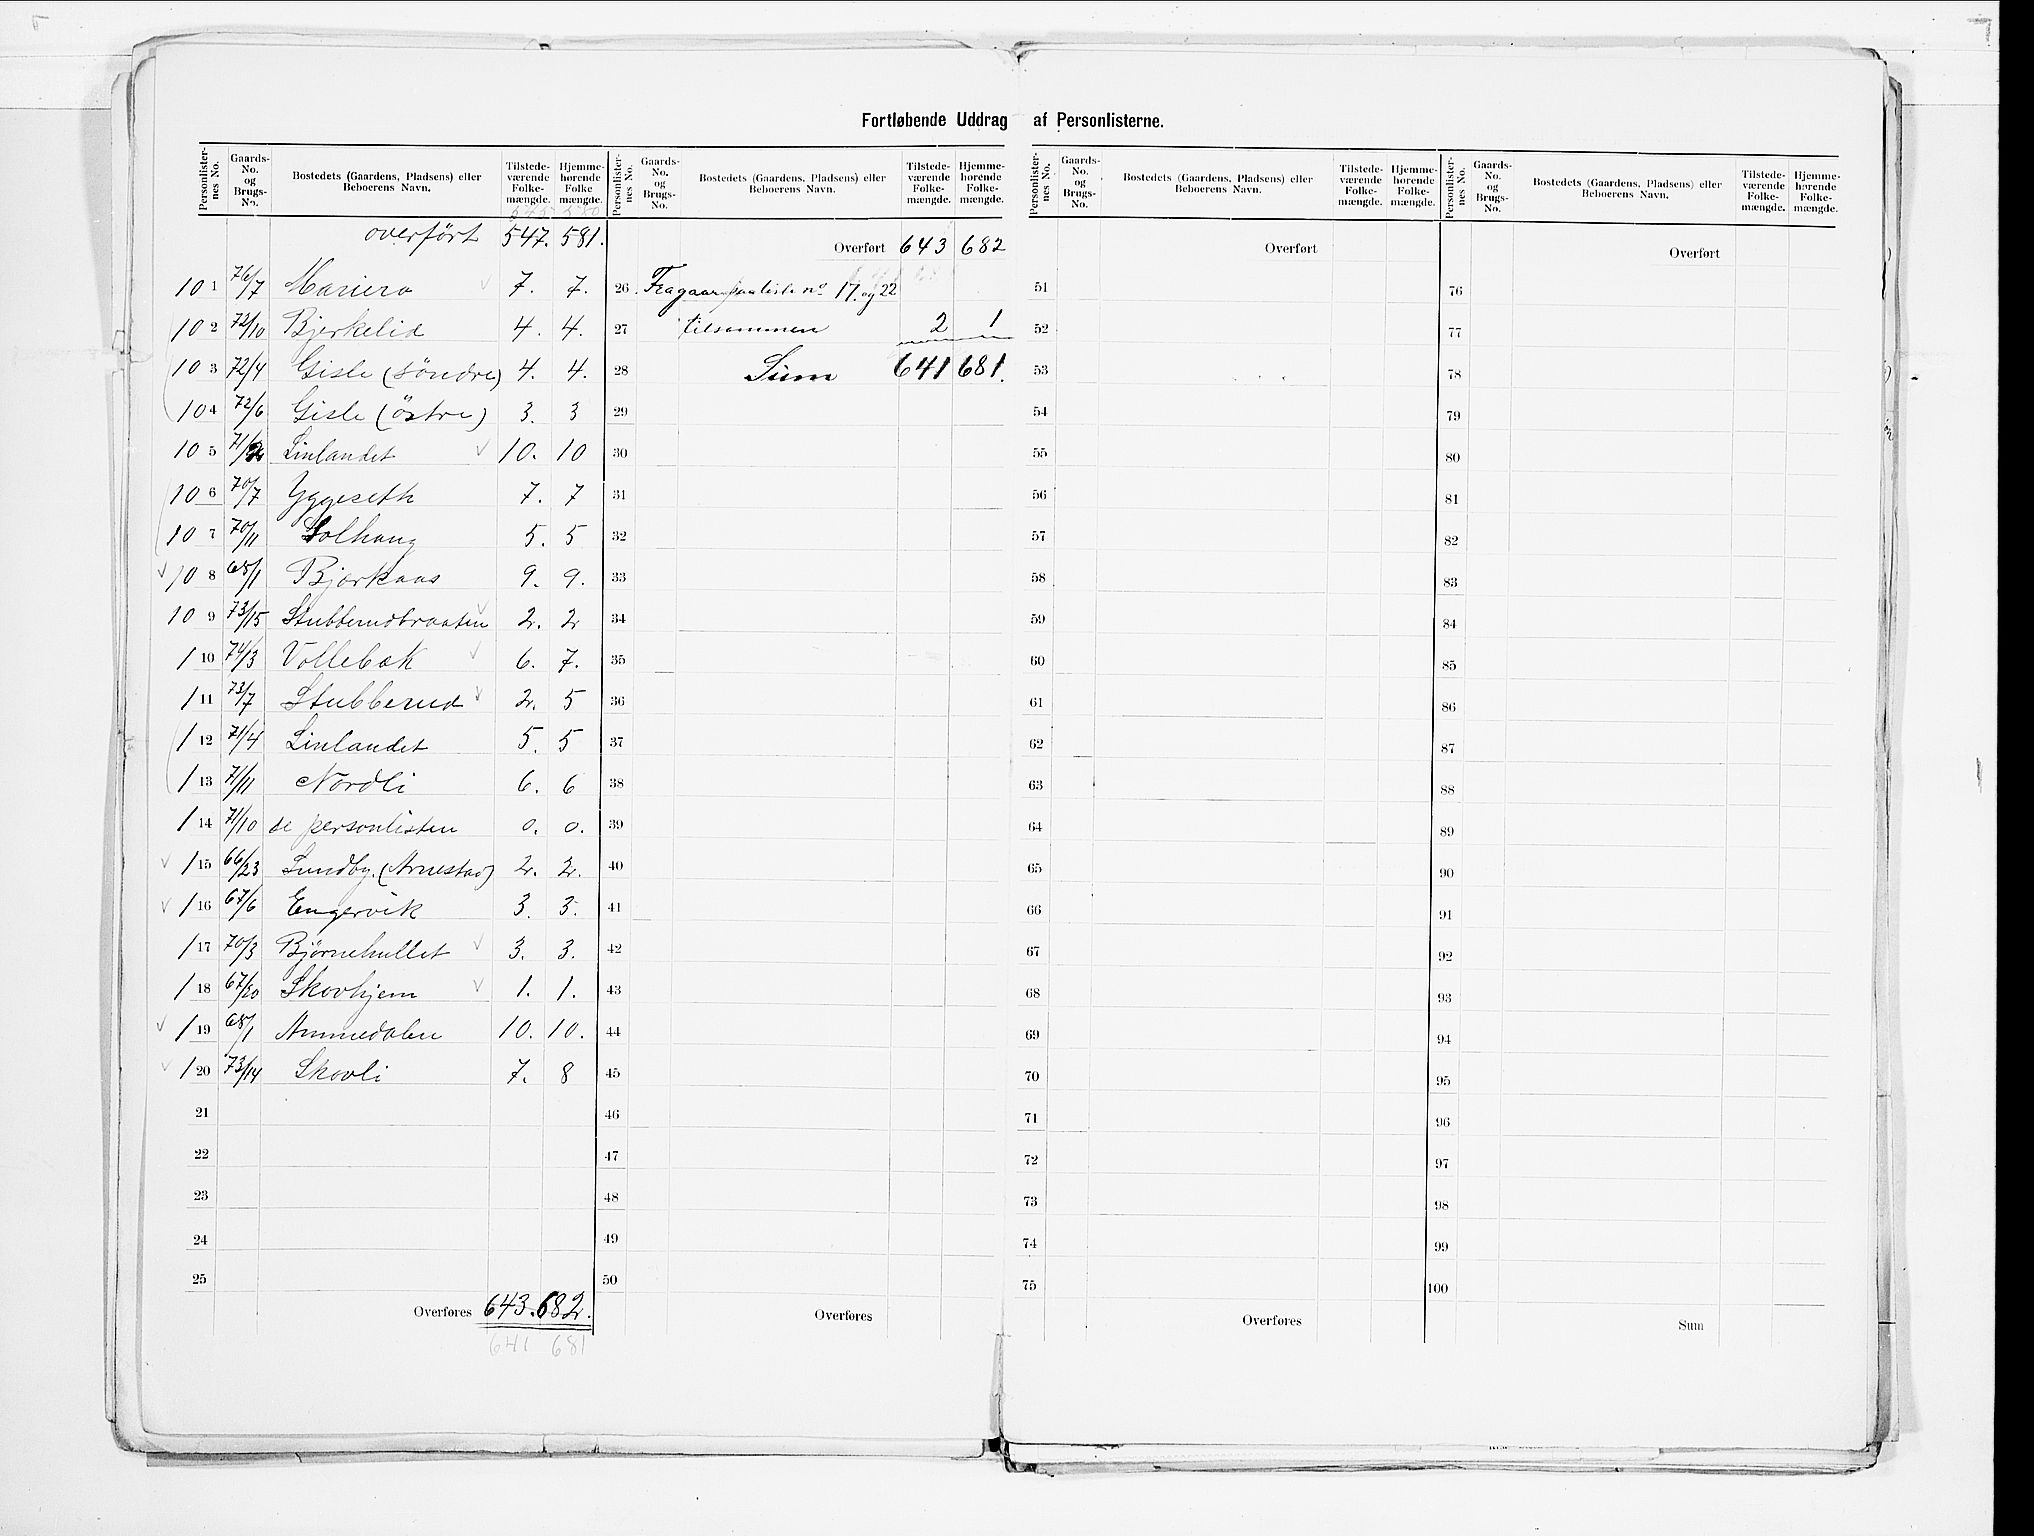 Fortløbende Uddrag af Personlisterne.
Personlister-nes No. Gaards-No. og Brugs-No. Bostedets (Gaardens, Pladsens) eller Beboerens Navn. Tilstede-værende Folke-mængde. Hjemme-hørende Folke mængde.
545 580
overført 547. 581.
101 76/7 Mariero 7. 7.
102 72/10 Bjerkelid 4. 4.
103 72/4 Gisle (søndre) 4. 4.
104 72/6 Gisle (östre) 3. 3
105 71/2 Linlandet 10. 10
106 70/7 Yggeseth 7. 7
107 70/11 Solhaug 5. 5
108 68/1 Bjorkaas 9. 9.
109 73/15 Stubberudbraaten 2. 2
110 74/3 Vollebæk 6. 7.
111 73/7 Stubberud 2. 5
112 71/4 Linlandet 5. 5
113 71/11 Nordli 6. 6
114 71/10 se personlisten 0. 0.
115 66/23 Lundby (Arnestad) 2. 2.
116 67/6 Engervik 3. 3.
117 70/3 Björnehullet 3. 3.
118 67/20 Skovhjem 1. 1.
119 68/1 Ammedalen 10. 10.
120 73/14 Skovli 7. 8
21
22
23
24
25
Overføres 643. 682.
641 681
Personlister-nes No. Gaards-No. og Brugs-No. Bostedets (Gaardens, Pladsens) eller Beboerens Navn. Tilstede-værende Folke-mængde. Hjemme-hørende Folke-mængde.
Overført 643 682
26 Fragaar paa liste no 17. og 22
27 tilsammen 2 1
28 Sum 641 681.
29
30
31
32
33
34
35
36
37
38
39
40
41
42
43
44
45
46
47
48
49
50
Overføres
Personlister-nes No. Gaards-No. og Brugs-No. Bostedets (Gaardens, Pladsens) eller Beboerens Navn. Tilstede-værende Folke-mængde. Hjemme-hørende Folke-mængde.
Overført
51
52
53
54
55
56
57
58
59
60
61
62
63
64
65
66
67
68
69
70
71
72
73
74
75
Overføres
Personlister-nes No. Gaards-No. og Brugs-No. Bostedets (Gaardens, Pladsens) eller Beboerens Navn. Tilstede-værende Folke-mængde. Hjemme-hørende Folke-mængde.
Overført
76
77
78
79
80
81
82
83
84
85
86
87
88
89
90
91
92
93
94
95
96
97
98
99
100
Sum